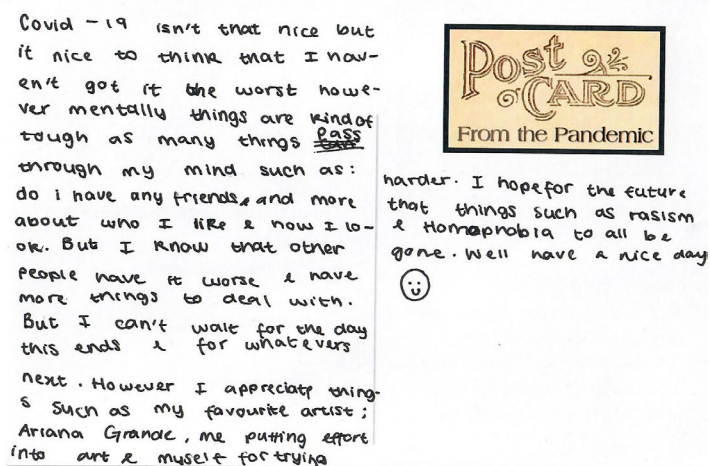 Covid - 19 isn't that nice but
it nice to think that I hav-
en't got it the worst howe-
ver mentally things are kind of
tough as many things pass
through my mind such as:
do i have any friends, and more
about who I like & how I lo-
ok. But I know that other
people have it worse & have
more things to deal with.
But I can't wait for the day
this ends & for whatevers
next. However I appreciate thing-
s such as my favourite artist;
Ariana Grande, me putting effort
into art & myself for trying
Post
CARD
From the Pandemic
harder. I hope for the future
that things such as rasism
& Homophobia to all be
gone. Well have a nice day